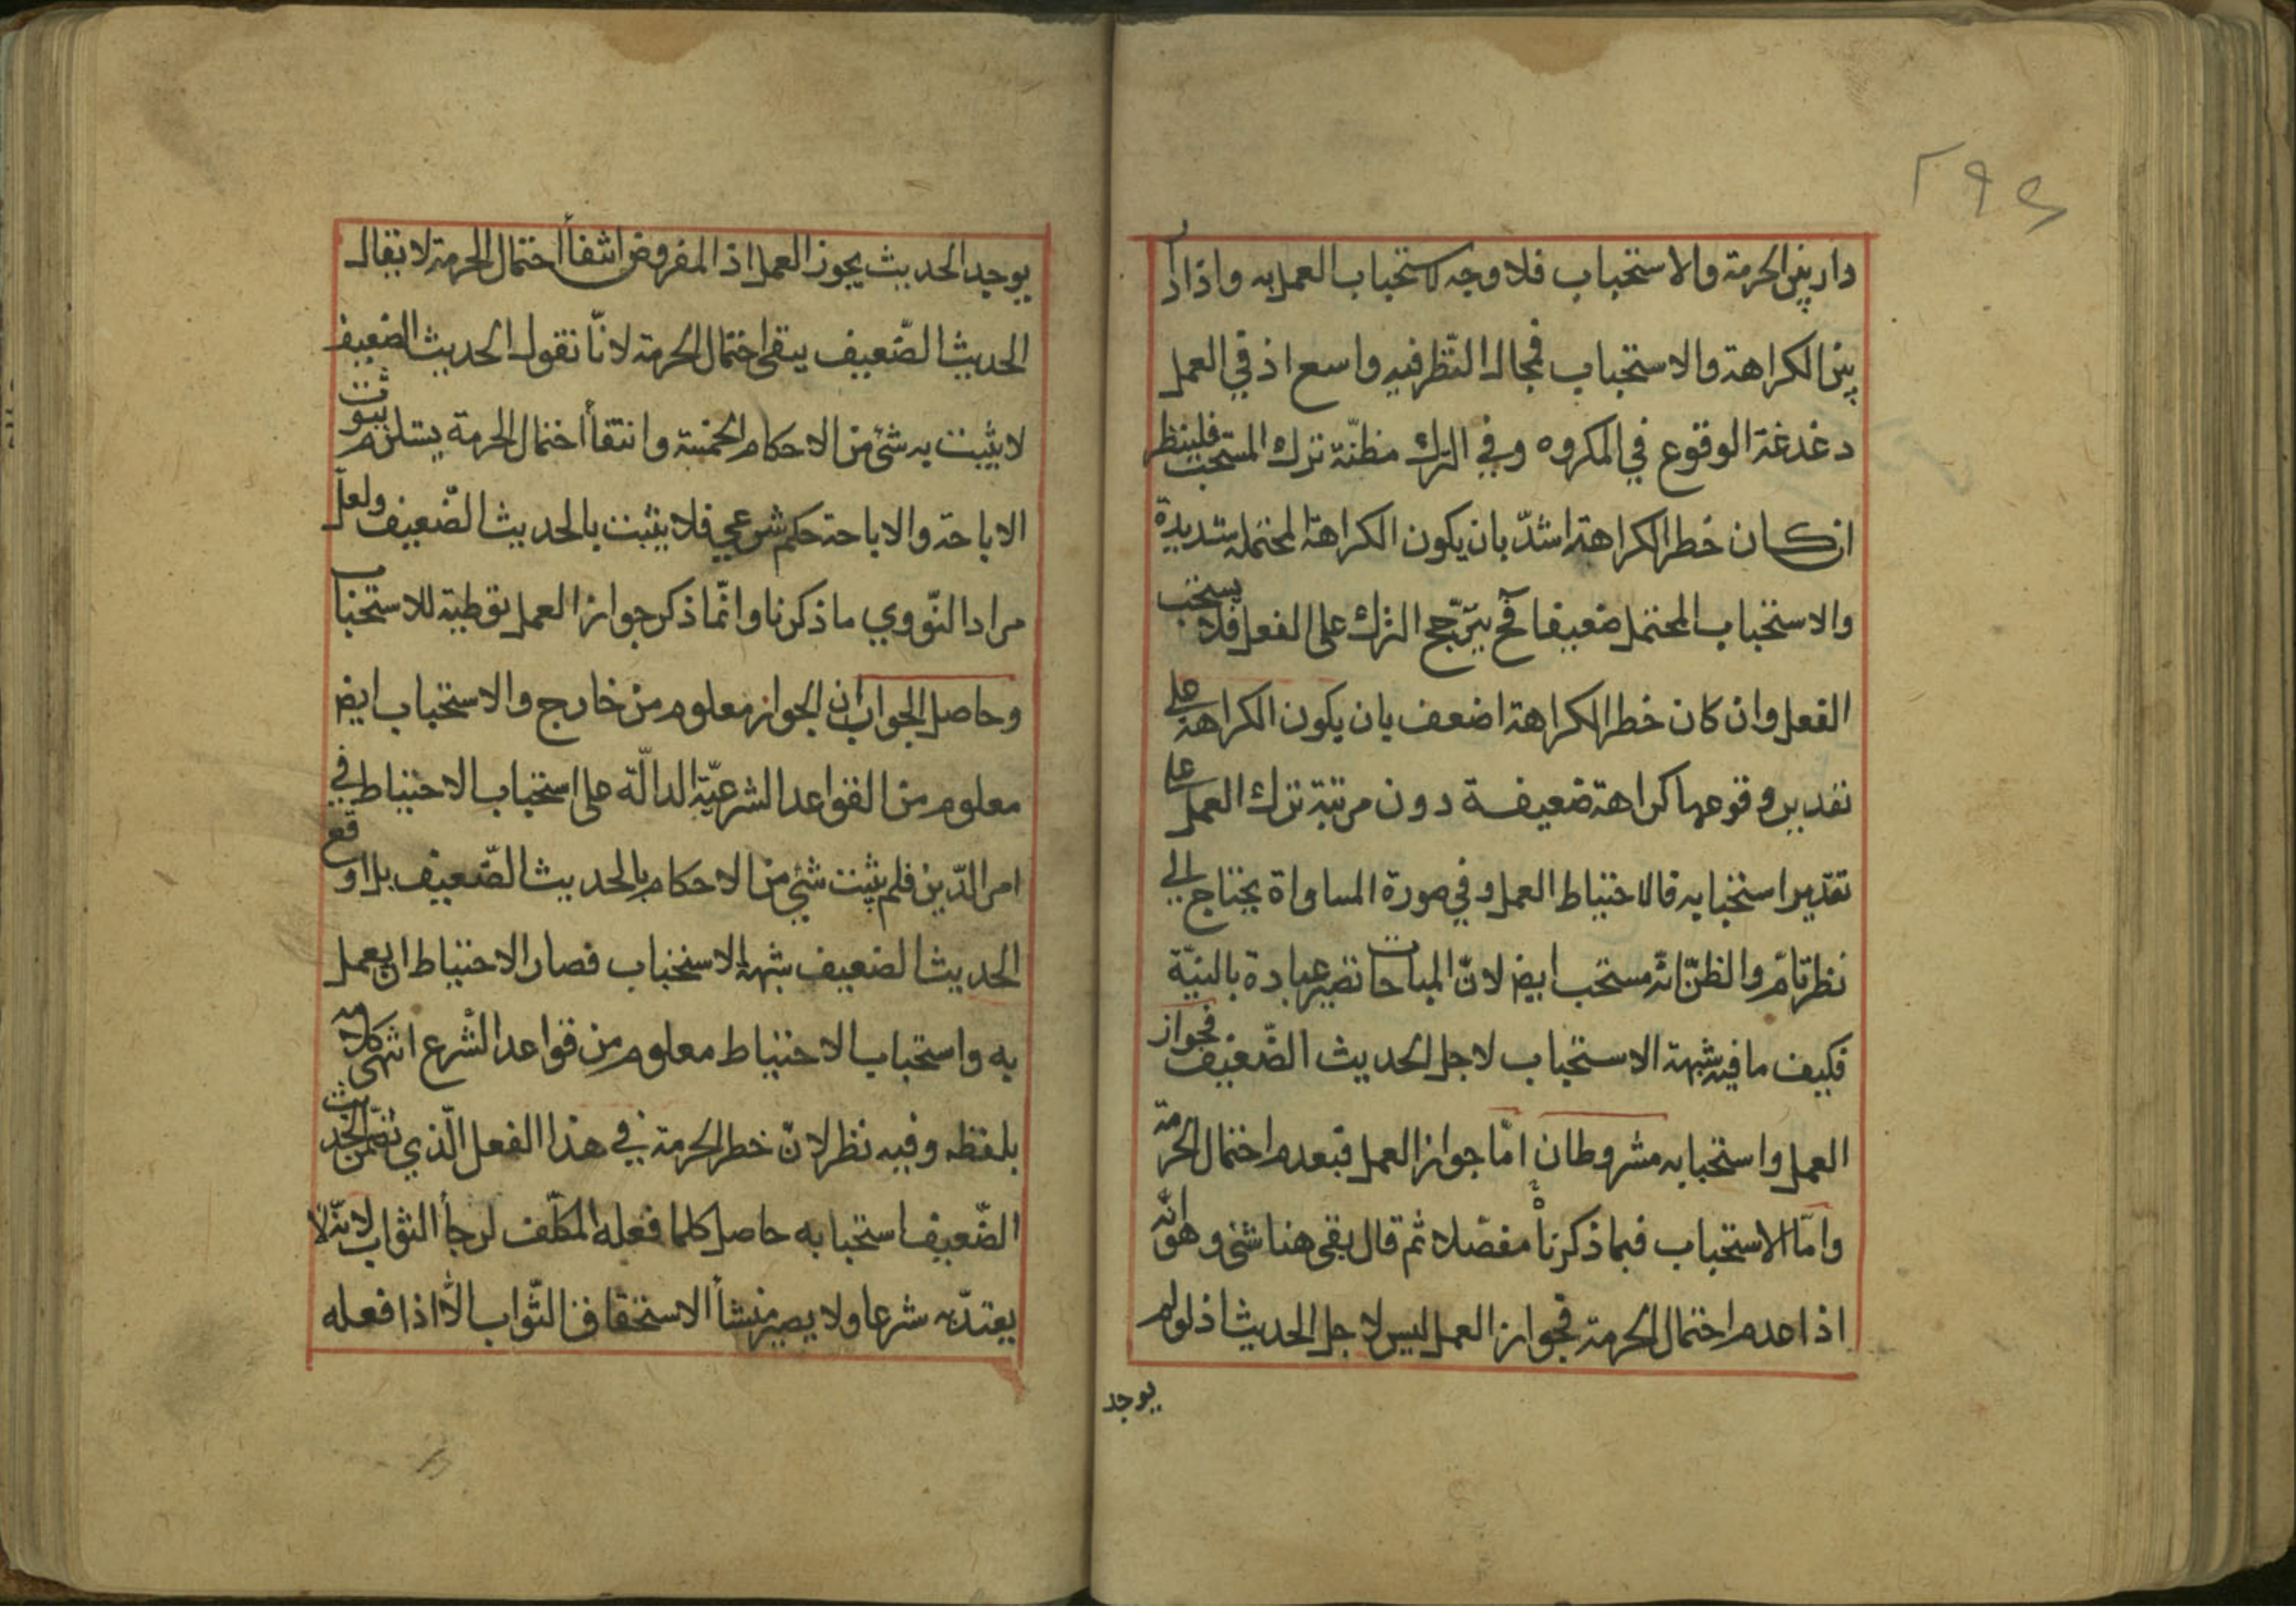 ۲۹۴
دار بين الحرمة والاستحباب فلا وجه لاستحباب العمل به واذا دار
بين الكراهة والاستحباب فمجال النّظر فيه واسع اذ في العمل
دغدغة الوقوع في المكروه وفي الترك مظنّة ترك المستحب فلينظر
ان كان خطر الكراهة اشدّ بان يكون الكراهة المحتملة شديدة
والاستحباب المحتمل ضعيفا فح يترجّح الترك على الفعل فلا يستحب
الفعل وان كان خطر الكراهة اضعف بان يكون الكراهة على
تقدير وقوعها كراهة ضعيفة دون مرتبة ترك العمل على
تقدير استحبابه فالاحتياط العمل وفي صورة المساواة يحتاج الى
نظر تامّ والظنّ انّه مستحب ايض لانّ المباحات تصير عبادة بالنيّة
فكيف ما فيه شبهة الاستحباب لاجل الحديث الضّعيف فجواز
العمل واستحبابه مشروطان امّا جواز العمل فبعدم احتمال الحرمة
وامّا الاستحباب فبما ذكرناه مفصّلا ثم قال بقى هنا شئ وهو انّه
اذا عدم احتمال الحرمة فجواز العمل ليس لاجل الحديث اذ لو لم
يوجد
يوجد الحديث يجوز العمل اذ المفروض انتفأ احتمال الحرمة لا يقال
الحديث الضّعيف يبقى احتمال الحرمة لانّا نقول الحديث الضعيف
لا يثبت به شئ من الاحكام الخمسة وانتفأ احتمال الحرمة يستلزم ثبوت
الاباحة والاباحة حكم شرعي فلا يثبت بالحديث الضّعيف ولعلّ
مراد النّووي ما ذكرنا وانّما ذكر جواز العمل توطية للاستحباب
وحاصل الجواب ان الجواز معلوم من خارج والاستحباب ايض
معلوم من القواعد الشرعيّة الدالّة على استحباب الاحتياط في
امر الدّين فلم يثبت شئ من الاحكام بالحديث الضّعيف بل اوقع
الحديث الضعيف شبهة الاستحباب فصار الاحتياط ان يعمل
به واستحباب الاحتياط معلوم من قواعد الشرع انتهى كلامه
بلفظه وفيه نظر لانّ خطر الحرمة في هذا الفعل الّذي تضمّن الحديث
الضّعيف استحبابه حاصل كلما فعله المكلّف لرجأ الثواب لانّه لا
يعتدّ به شرعا ولا يصير منشأ لاستحقاق الثّواب الّا اذا فعله